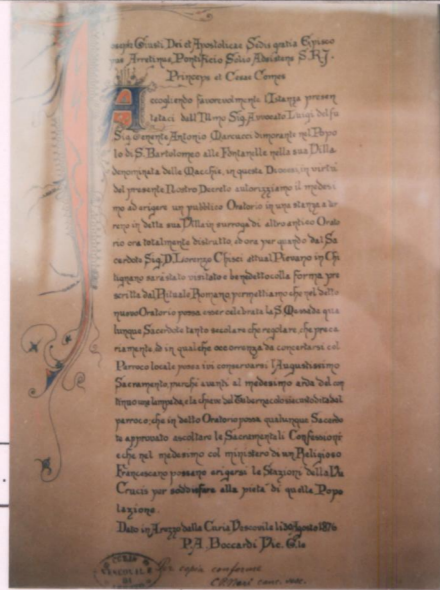 seppe Giusti Dei et Apostolicae Sedis gratia Episco
pus Arretinus, Pontificio Solio Adsistens S.R.J.
Princeps et Cesae Comes
Accogliendo favorevolmente l'Istanza presen
tataci dall'Illmo Sig. Avvocato Luigi del fu
Sig. Tenente Antonio Mercucci dimorante nel Popo
lo di S. Bartolomeo alle Fontanelle nella sua Villa
denominata delle Macchie, in questa Diocesi, in virtù
del presente Nostro Decreto autorizziamo il medesi
mo ad erigere un pubblico Oratorio in una stanza a ter
reno in detta sua Villa in surroga di altro antico Orato
rio ora totalmente distrutto, ed ora per quando dal Sa
cerdote Sig. D. Lorenzo Chisci attual Piovano in Chi
tignano sarà stato visitato e benedetto colla forma pre
scritta dal Rituale Romano permettiamo che nel detto
nuovo Oratorio possa esser celebrata la S. Messa da qua
lunque Sacerdote tanto secolare che regolare, che preca
riamente, e in qualche occorrenza da concertarsi col
Parroco locale possa ivi conservarsi l'Augustissimo
Sacramento purchè avanti al medesimo arda del con
tinuo una lampada, e la chiave del Tabernacolo sia custodita dal
parroco; che in detto Oratorio possa qualunque Sacerdo
te approvato ascoltare le Sacramentali Confessioni
e che nel medesimo col ministero di un Religioso
Francescano possano erigersi le Stazioni della Via
Crucis per soddisfare alla pietà di quella Popo
lazione.
Dato in Arezzo dalla Curia Vescovile li 30 Agosto 1876
P. A. Boccardi Vic. G.le
CURIA
VESCOVILE
DI
Per copia conforme
canc. vesc.